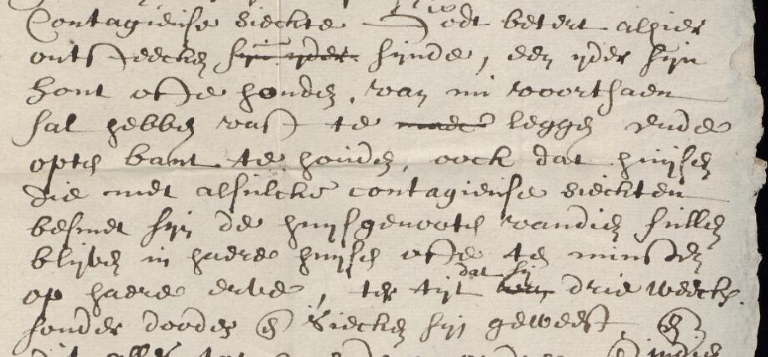 Contagieuse sieckte Godt betert alhier
ontsteecken sijn yder sijnde, een yder sijn
hont ofte honden, van nu voorthaen
sal hebben vast te leggen ende
opten bant te houden, oock dat huijsen
die met alsulcke contagieuse sieckten
besmet sijn de huijsgenooten van dien sullen
blijven in haere huijsen ofte ten minsten
op haere erve, ter tijt dat sij drie weecken
sonder dooden en siecken sijn geweest, en